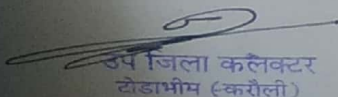 उप जिला कलेक्टर
टोडाभीम (करौली)